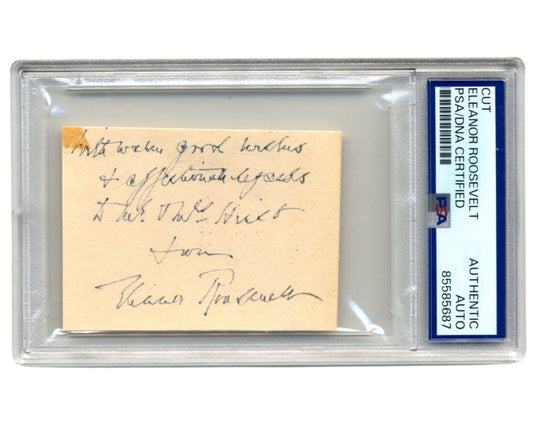 With warm good wishes
& affectionate regards
to Mr. & Mrs. Hirst
from
Eleanor Roosevelt
CUT
ELEANOR ROOSEVELT
PSA/DNA CERTIFIED
PSA
AUTHENTIC
AUTO
85585687